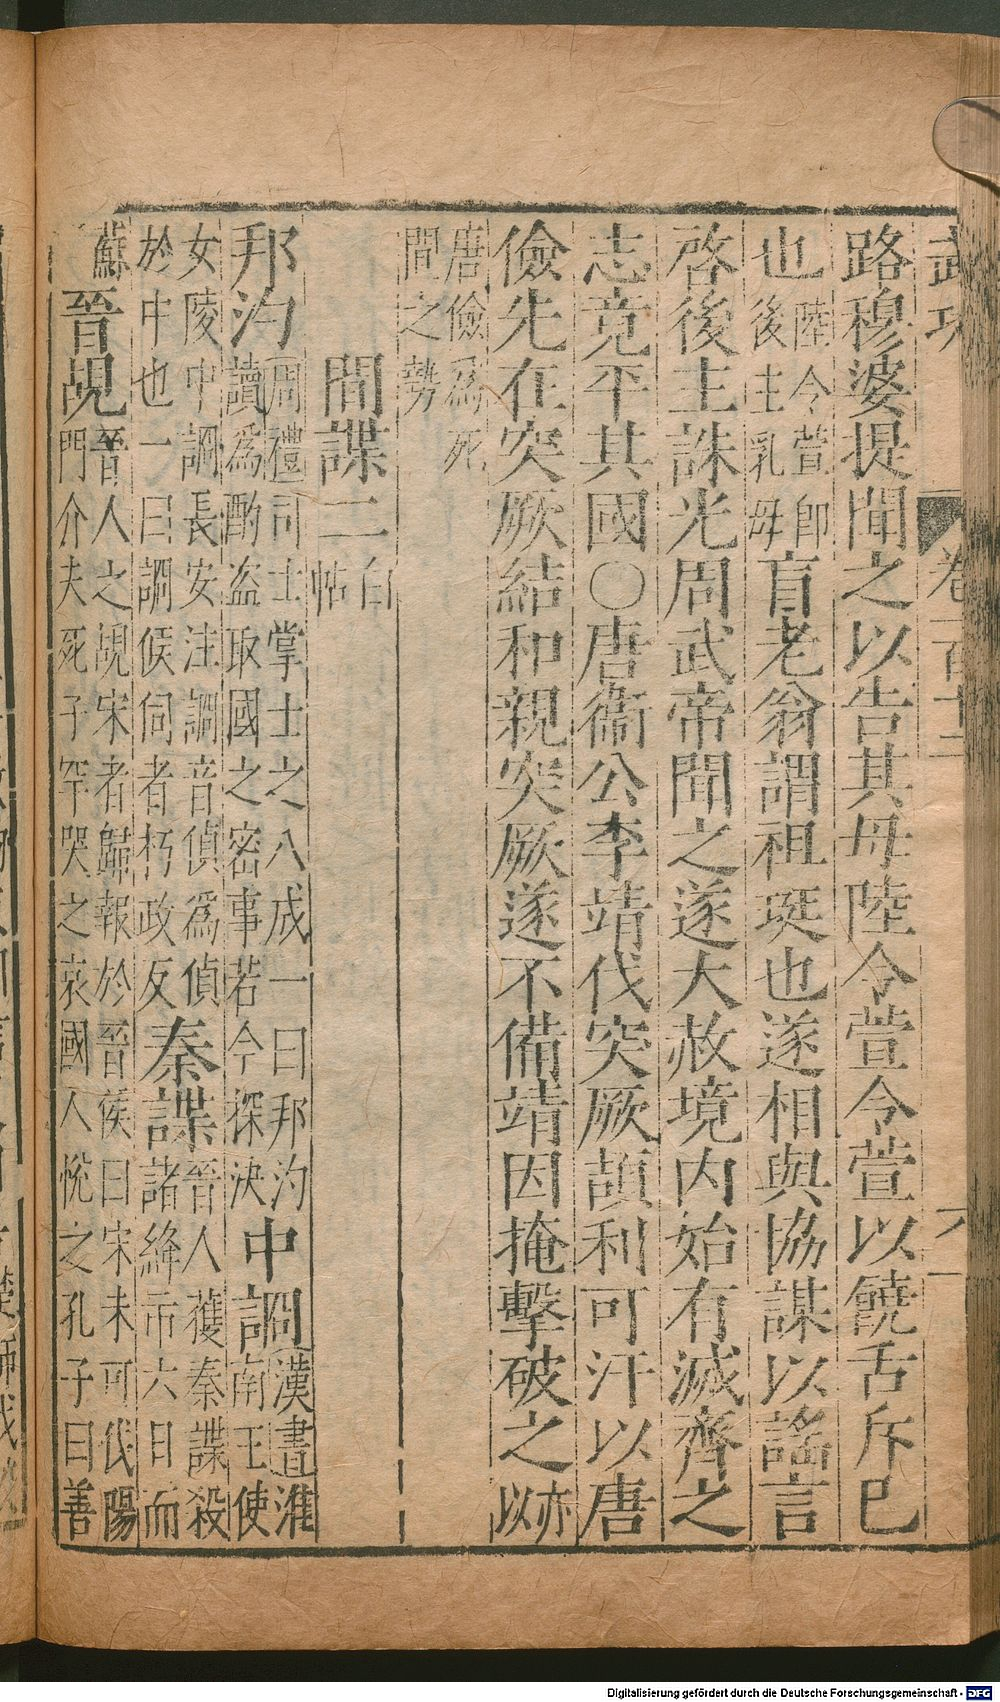 卷一百十三
六
路穆婆提聞之以告其母陸令萱令萱以饒舌斥己
也陸令萱即後主乳母盲老翁謂祖珽也遂相與協謀以謠言
啓後主誅光周武帝聞之遂大赦境內始有滅齊之
志竟平其國○唐衞公李靖伐突厥頡利可汗以唐
儉先在突厥結和親突厥遂不備靖因掩擊破之亦以
唐儉爲死間之勢
間諜二白帖
邦汋周禮司士掌士之八成一曰邦汋讀爲酌盗取國之密事若今探決中詗漢書淮南王使
女陵中詗長安注詗音偵爲偵於中也一曰詗候伺者朽政反秦諜晉人獲秦諜殺諸絳市六日而
蘇晉覘晉人之覘宋者歸報於晉侯曰宋未可伐陽門介夫死子罕哭之哀國人悅之孔子曰善
Digitalisierung gefördert durch die Deutsche Forschungsgemeinschaft - DFG